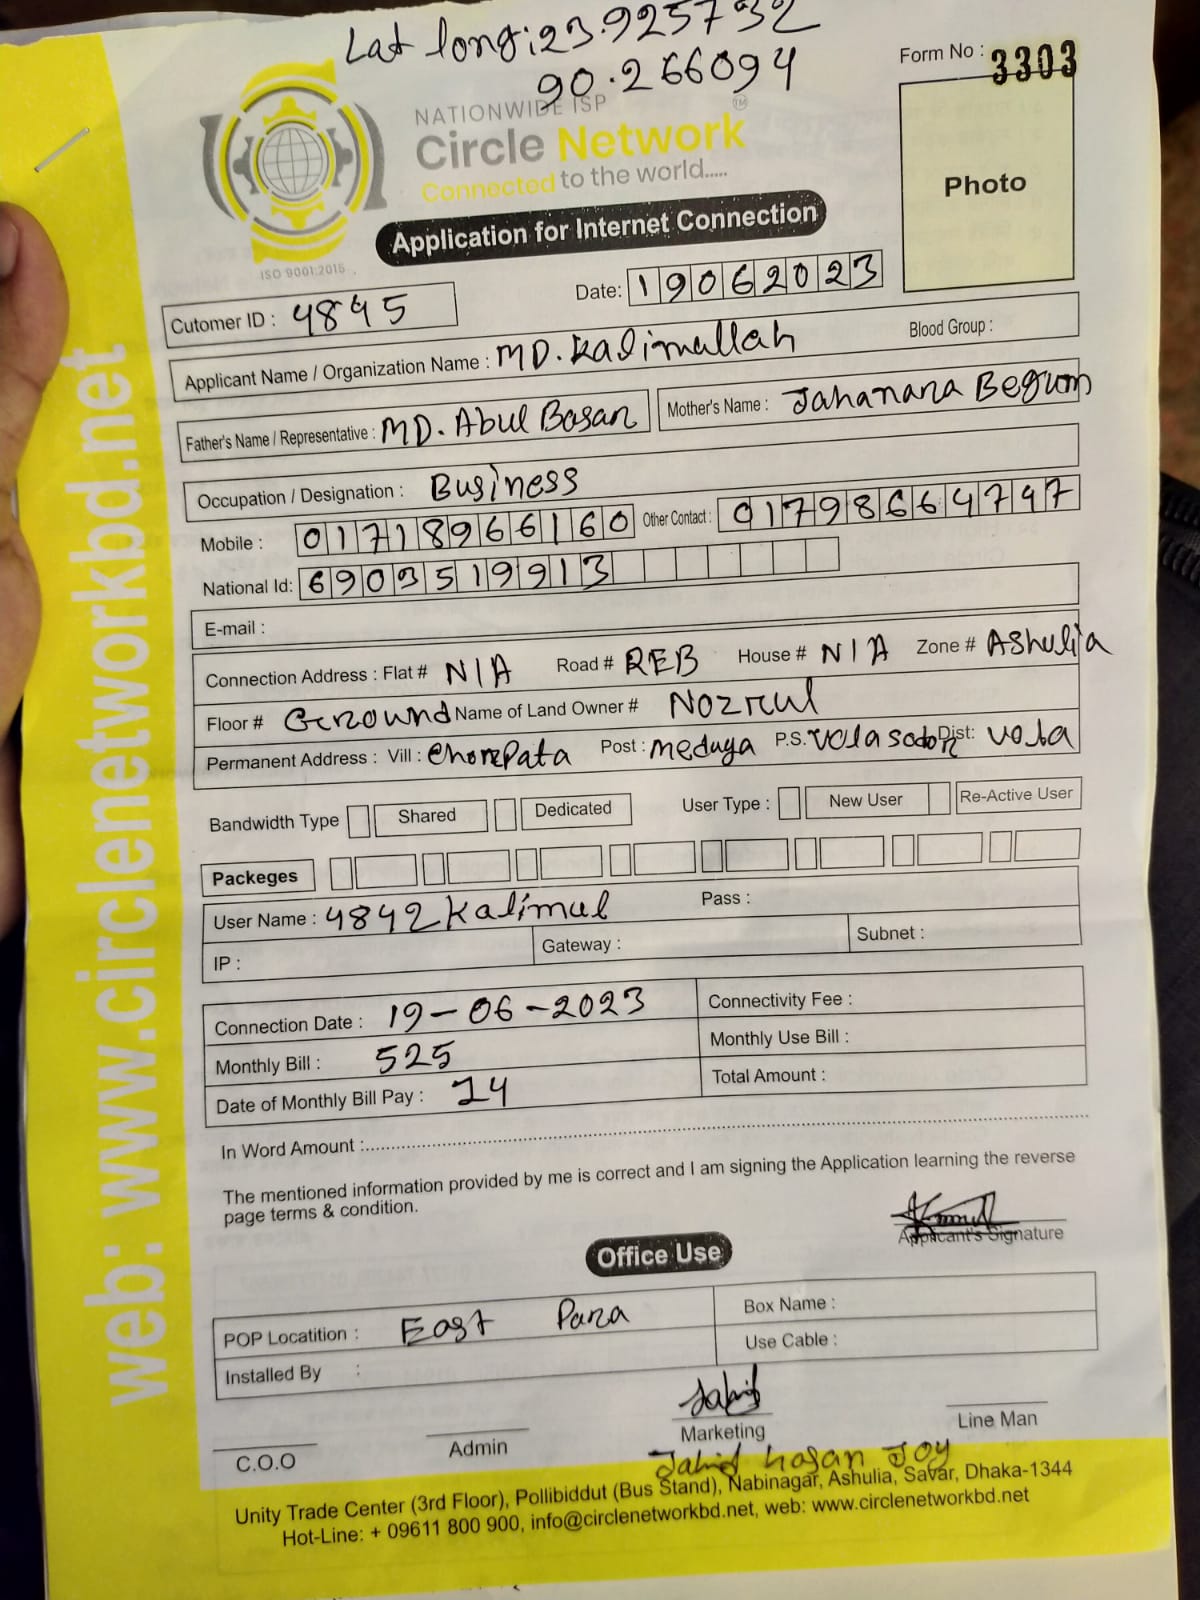 Lat long:23.925732
90.266094
Form No : 3303
NATIONWIDE ISP
Circle Network TM
Connected to the world.....
Photo
Application for Internet Connection
ISO 9001:2015
Date: 19062023
Cutomer ID : 4845
Applicant Name / Organization Name : MD. Kalimullah Blood Group :
Father's Name / Representative : MD. Abul Basan Mother's Name : Jahanara Begum
Occupation / Designation : Business
Mobile : 01718966160 Other Contact : 01798664747
National Id: 6903519913
E-mail :
Connection Address : Flat # N/A Road # REB House # N/A Zone # Ashulia
Floor # Ground Name of Land Owner # Nozrul
Permanent Address : Vill : Chorepata Post : meduya P.S. vola sodor Dist: vola
Bandwidth Type Shared Dedicated User Type : New User Re-Active User
Packeges
User Name : 4842Kalimul Pass :
IP : Gateway : Subnet :
Connection Date : 19-06-2023 Connectivity Fee :
Monthly Bill : 525 Monthly Use Bill :
Date of Monthly Bill Pay : 14 Total Amount :
In Word Amount :
The mentioned information provided by me is correct and I am signing the Application learning the reverse
page terms & condition.
Applicant's Signature
Office Use
POP Locatition : East Para Box Name :
Installed By : Use Cable :
Jahid
C.O.O Admin Marketing Line Man
Jahid hasan Joy
Unity Trade Center (3rd Floor), Pollibiddut (Bus Stand), Nabinagar, Ashulia, Savar, Dhaka-1344
Hot-Line: + 09611 800 900, info@circlenetworkbd.net, web: www.circlenetworkbd.net
web: www.circlenetworkbd.net